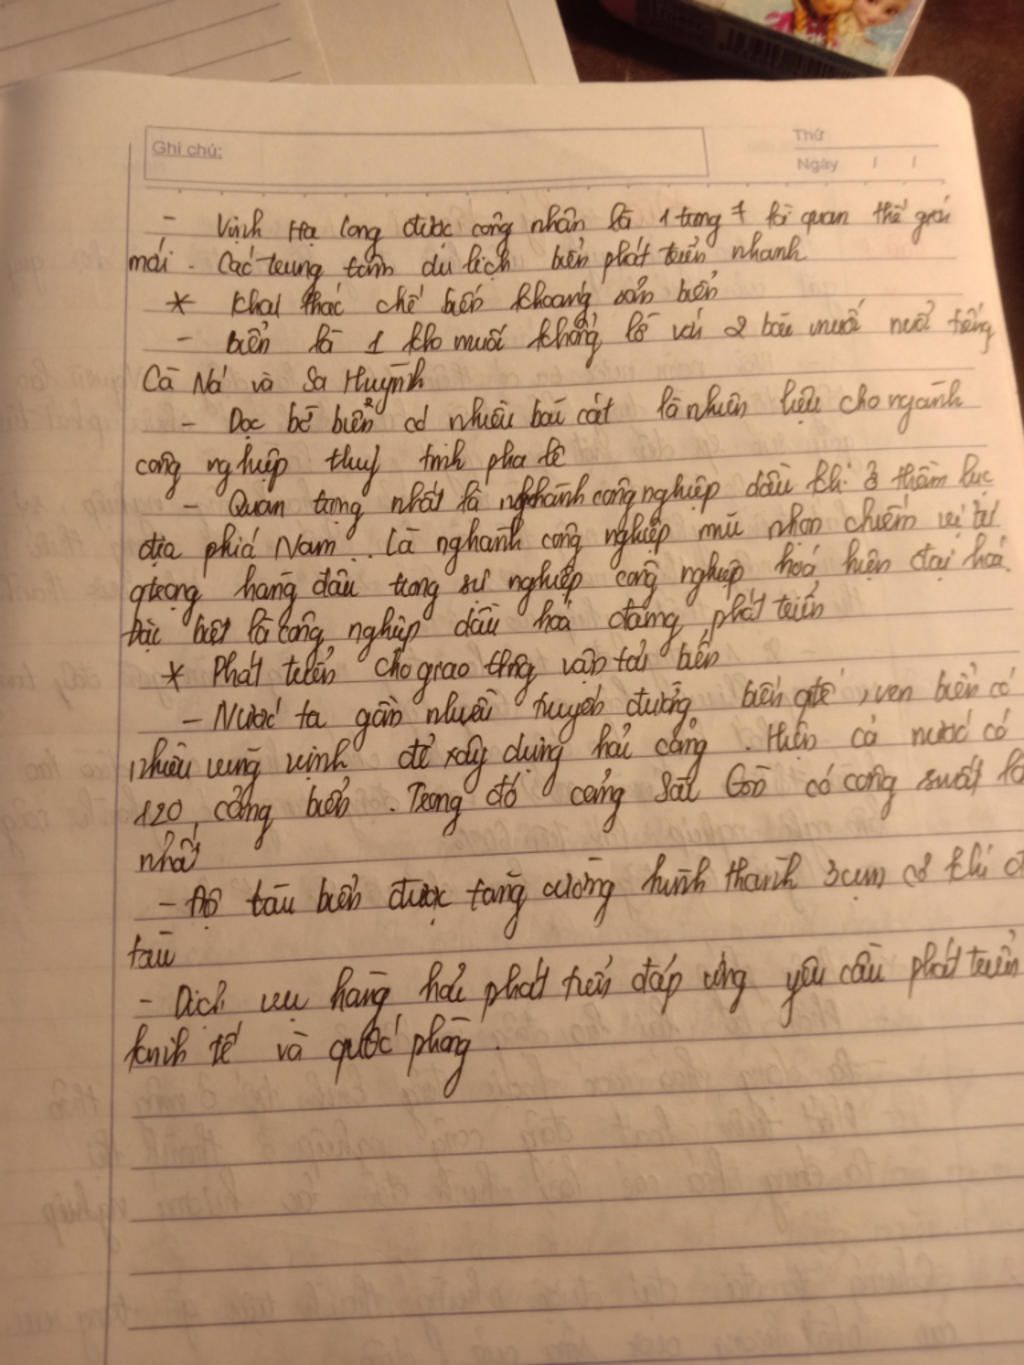 Ghi chú:
Thứ
Ngày / /
- Vịnh Hạ Long được công nhân là 1 trong 7 kì quan thế giới
mới. Các trung tâm du lịch biển phát triển nhanh
* Khai thác chế biến khoáng sản biển
- Biển là 1 kho muối khổng lồ với 2 bãi muối nuổi tiếng
Cà Ná và Sa Huỳnh
- Dọc bờ biển có nhiều bãi cát là nhiên liệu cho ngành
công nghiệp thuỷ tinh pha lê
- Quan trọng nhất là nghành công nghiệp dầu khí ở thềm lục
địa phía Nam. Là nghành công nghiệp mũi nhọn chiếm vị trí
qtrọng hàng đầu trong sự nghiệp công nghiệp hoá hiện đại hoá.
Đặc biệt là công nghiệp dầu hoá đang phát triển
* Phát triển cho giao thông vận tải biển
- Nước ta gần nhiều tuyến đường biển qtế, ven biển có
nhiều vũng vịnh để xây dựng hải cảng. Hiện cả nước có
120 cảng biển. Trong đó cảng Sài Gòn có công suất
nhất
- Độ tàu biển được tăng cường hình thành 3 cụm cơ khí
tàu
- Dịch vụ hàng hải phát triển đáp ứng yêu cầu phát triển
kinh tế và quốc phòng.